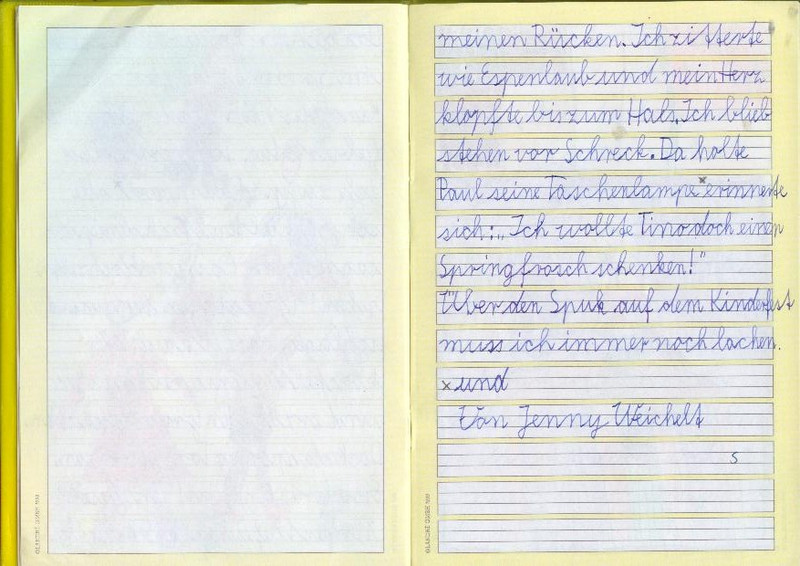 meinen Rücken. Ich zitterte
wie Espenlaub und mein Herz
klopfte bis zum Hals. Ich blieb
stehen vor Schreck. Da holte
Paul seine Taschenlampe × erinnerte
sich: „Ich wollte Tino doch einen
Springfrosch schenken!"
Über den Spuk auf dem Kinderfest
muss ich immer noch lachen.
× und
Von Jenny Weichelt
5